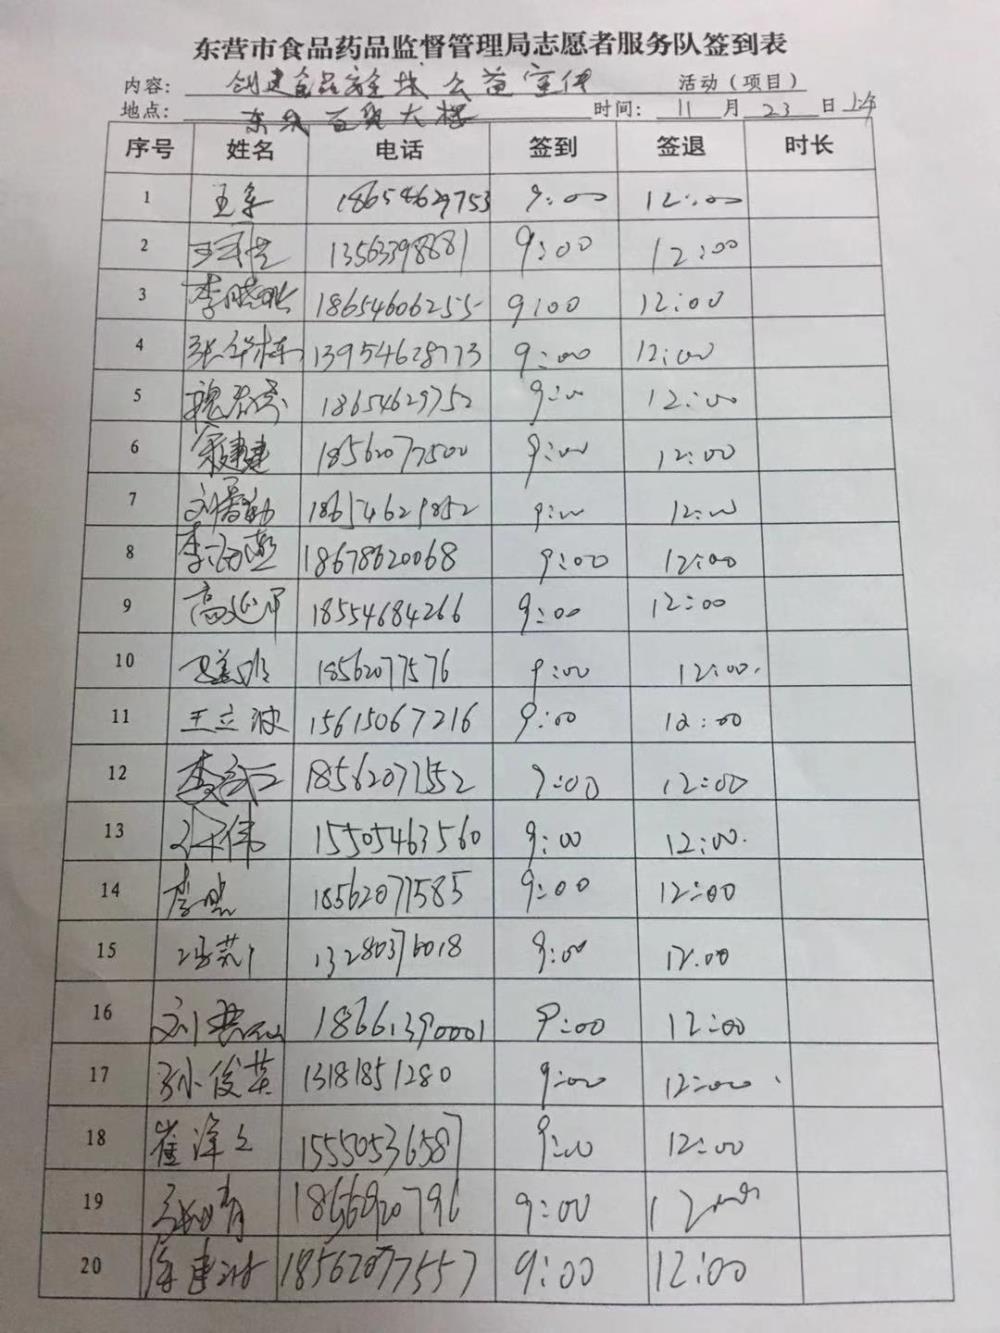 东营市食品药品监督管理局志愿者服务队签到表
内容: 创建食品安全城 公益宣传 活动（项目）
地点: 东城百货大楼 时间: 11 月 23 日 上午
序号 姓名 电话 签到 签退 时长
1 18654629753 9:00 12:00
2 13563398881 9:00 12:00
3 李晓 18654606255 9:00 12:00
4 张华栋 13954628773 9:00 12:00
5 18654629752 9:00 12:00
6 18562077500 9:00 12:00
7 刘 18654629852 9:00 12:00
8 李 燕 18678620068 9:00 12:00
9 高延军 18554684266 9:00 12:00
10 18562077576 9:00 12:00.
11 王立波 15615067216 9:00 12:00
12 李 18562077552 9:00 12:00
13 伟 15505463560 9:00 12:00.
14 李晓 18562077585 9:00 12:00
15 冯 13280376018 9:00 12:00
16 刘 18661390001 9:00 12:00
17 孙俊英 13181851280 9:00 12:00
18 崔泽 15550536587 9:00 12:00
19 青 9:00 12:00
20 建 18562077557 9:00 12:00